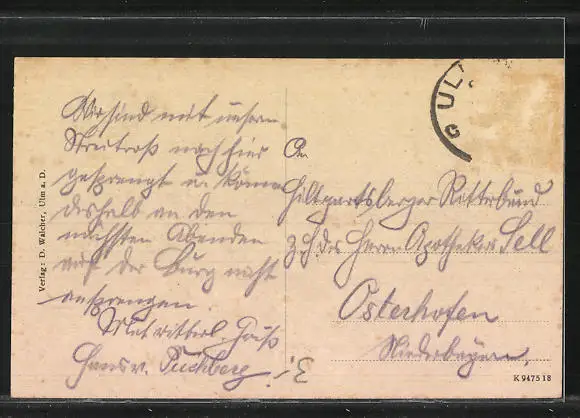 Wir sind mit unserm
Streitroß nach hier
gesprengt u. können
deshalb an den
nächsten Abenden
auf der Burg nicht
ansprengen.
Mit ritterl. Gruß
Hans v. Puchberg.
An
Hiltgartsberger Ritterbund
z. H. des Herrn Apotheker Sell
Osterhofen
Niederbayern.
3.-
ULM
Verlag: D. Walcher, Ulm a. D.
K 9475 18